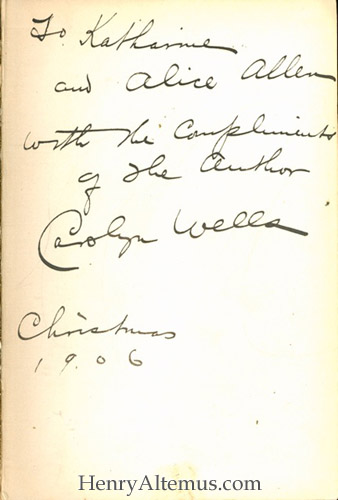 To Katharine
and Alice Allen
with the Compliments
of the Author
Carolyn Wells
Christmas
1906
HenryAltemus.com